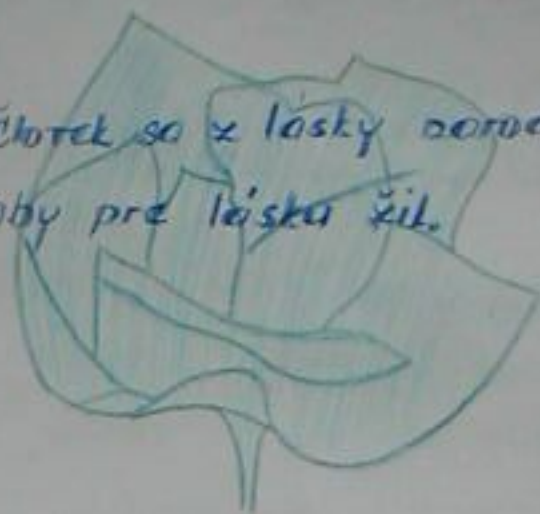 Človek sa z lásky
aby pre lásku žil.